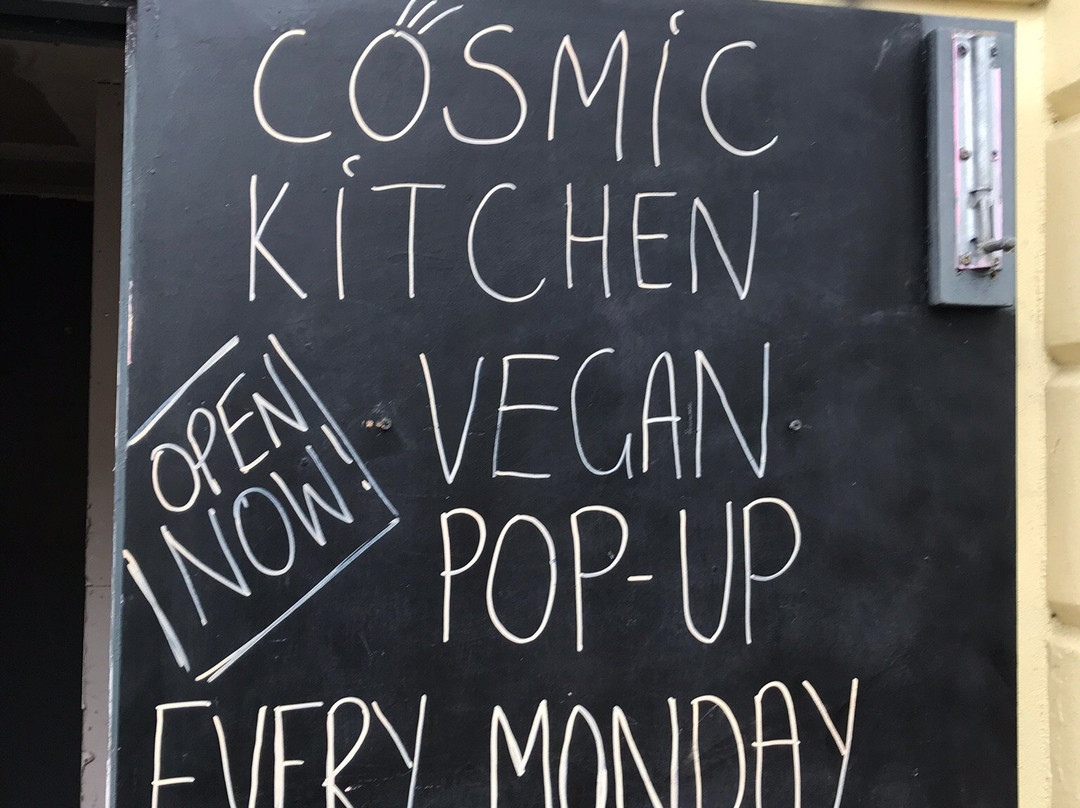 COSMIC
KITCHEN
OPEN
NOW!
VEGAN
POP-UP
EVERY MONDAY